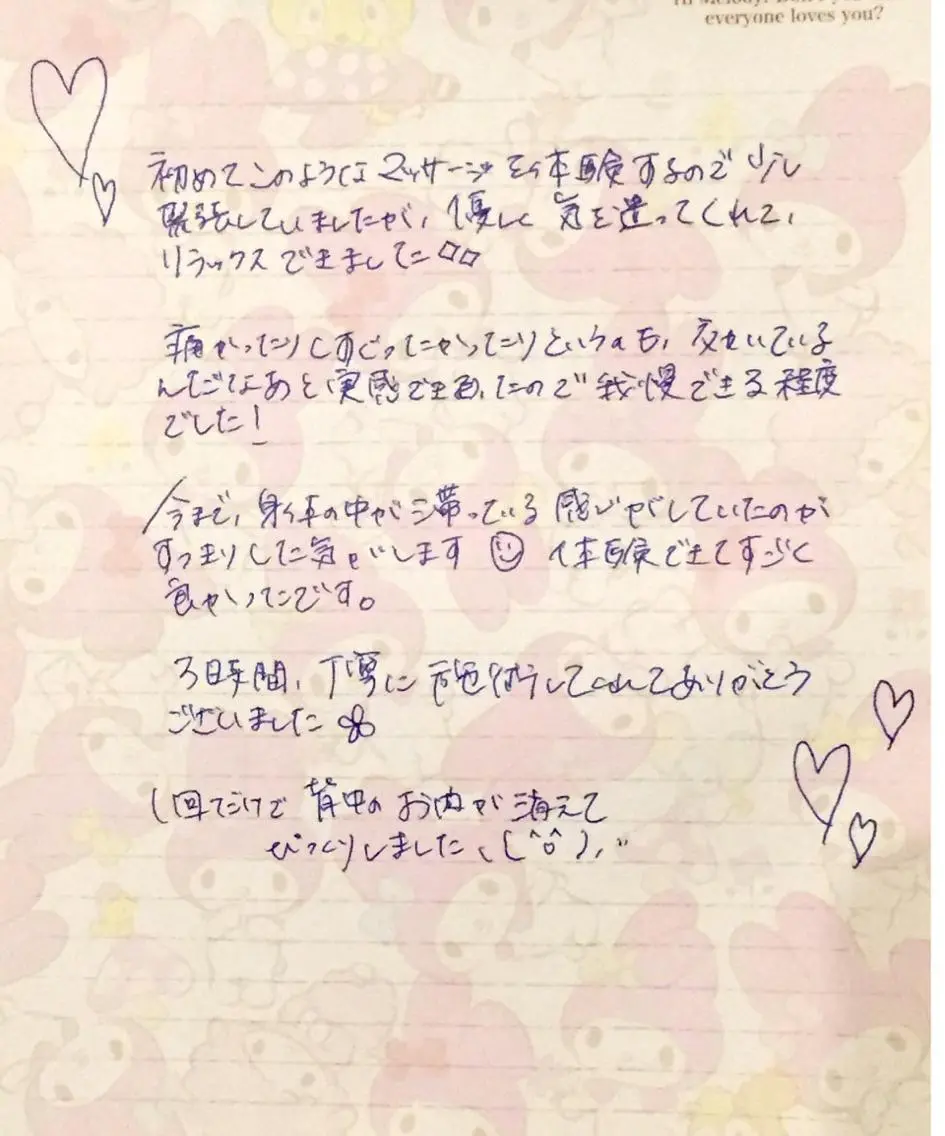 everyone loves you?
初めてこのようなマッサージを体験するので少し
緊張していましたが、優しく気を遣ってくれて、
リラックスできました◇◇
痛かったりくすぐったかったりというのも、効いている
んだなあと実感できましたので我慢できる程度
でした!
今まで、身体の中が滞っている感じがしていたのが
すっきりした気がします☺ 体験できてすごく
良かったです。
3時間、丁寧に施術してくれてありがとう
ございました
1回だけで背中のお肉が消えて
びっくりしました、(^o^)、"